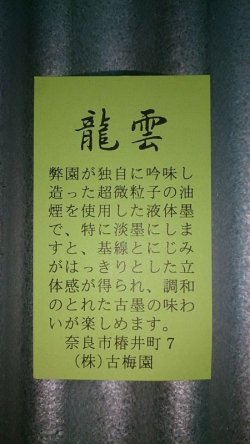 龍雲
弊園が独自に吟味し
造った超微粒子の油
煙を使用した液体墨
で、特に淡墨にしま
すと、基線とにじみ
がはっきりとした立
体感が得られ、調和
のとれた古墨の味わ
いが楽しめます。
奈良市椿井町7
(株)古梅園